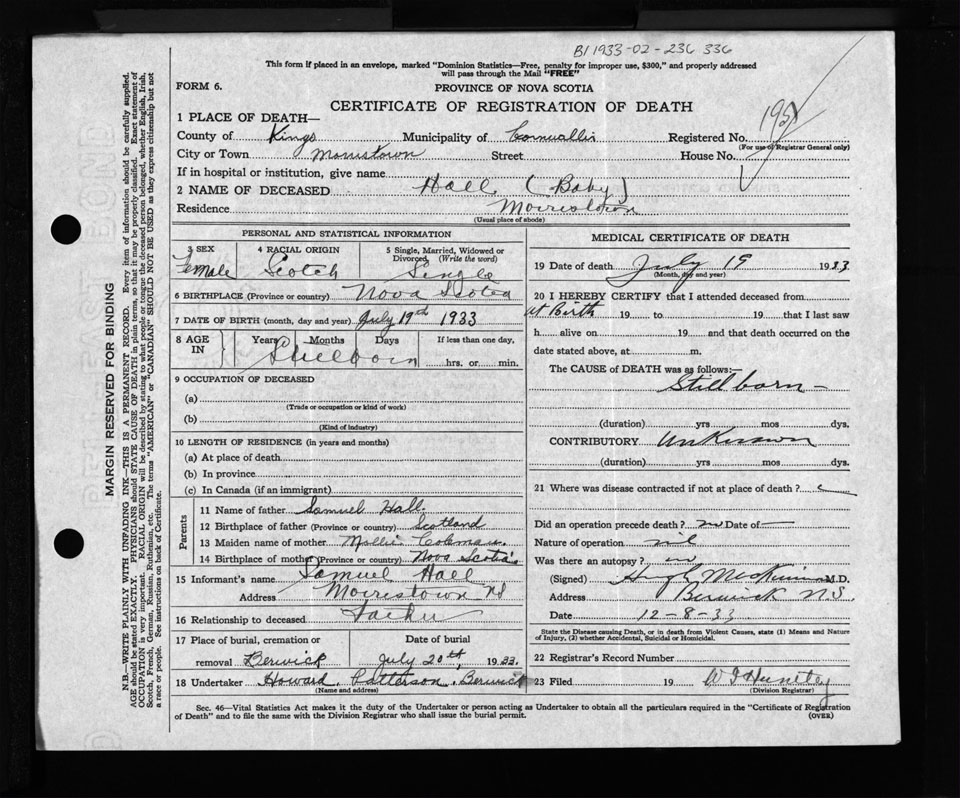 B1 1933-02-236 336
This form if placed in an envelope, marked "Dominion Statistics—Free, penalty for improper use, $300," and properly addressed
will pass through the Mail "FREE"
FORM 6.
PROVINCE OF NOVA SCOTIA
CERTIFICATE OF REGISTRATION OF DEATH
1 PLACE OF DEATH—
County of Kings Municipality of Cornwallis Registered No.
(For use of Registrar General only)
City or Town Morristown Street House No.
If in hospital or institution, give name
2 NAME OF DECEASED Hall (Baby)
Residence Morristown
(Usual place of abode)
PERSONAL AND STATISTICAL INFORMATION
3 SEX 4 RACIAL ORIGIN 5 Single, Married, Widowed or
Divorced (Write the word)
Female Scotch Single
6 BIRTHPLACE (Province or country) Nova Scotia
7 DATE OF BIRTH (month, day and year) July 19th 1933
8 AGE IN Years Months Days If less than one day,
Stillborn hrs. or min.
9 OCCUPATION OF DECEASED
(a)
(Trade or occupation or kind of work)
(b)
(Kind of industry)
10 LENGTH OF RESIDENCE (in years and months)
(a) At place of death
(b) In province
(c) In Canada (if an immigrant)
Parents
11 Name of father Samuel Hall
12 Birthplace of father (Province or country) Scotland
13 Maiden name of mother Mollie Coleman
14 Birthplace of mother (Province or country) Nova Scotia
15 Informant's name Samuel Hall
Address Morristown NS
16 Relationship to deceased Father
17 Place of burial, cremation or Date of burial
removal Berwick July 20th, 1933.
18 Undertaker Howard Patterson, Berwick
(Name and address)
MEDICAL CERTIFICATE OF DEATH
19 Date of death July 19 1933
(Month, day and year)
20 I HEREBY CERTIFY that I attended deceased from
at Birth 19 to 19 that I last saw
h alive on 19 and that death occurred on the
date stated above, at m.
The CAUSE of DEATH was as follows:—
Stillborn —
(duration) yrs mos dys.
CONTRIBUTORY Unknown
(duration) yrs mos dys.
21 Where was disease contracted if not at place of death?
Did an operation precede death? no Date of —
Nature of operation nil
Was there an autopsy? no
(Signed) Hugh M.D.
Address Berwick N.S.
Date 12-8-33
State the Disease causing Death, or in death from Violent Causes, state (1) Means and Nature
of Injury, (2) whether Accidental, Suicidal or Homicidal.
22 Registrar's Record Number
23 Filed 19 Huntley
(Division Registrar)
Sec. 46—Vital Statistics Act makes it the duty of the Undertaker or person acting as Undertaker to obtain all the particulars required in the "Certificate of Registration
of Death" and to file the same with the Division Registrar who shall issue the burial permit.
(OVER)
MARGIN RESERVED FOR BINDING
N.B.—WRITE PLAINLY WITH UNFADING INK—THIS IS A PERMANENT RECORD. Every item of information should be carefully supplied.
AGE should be stated EXACTLY. PHYSICIANS should STATE CAUSE OF DEATH in plain terms, so that it may be properly classified. Exact statement of
OCCUPATION is very important. RACIAL ORIGIN will be described by stating to what people or tongue the deceased person belonged, whether English, Irish,
Scotch, French, German, Russian, Ruthenian, etc. The terms "AMERICAN" or "CANADIAN" SHOULD NOT BE USED as they express citizenship but not
a race or people. See instructions on back of Certificate.